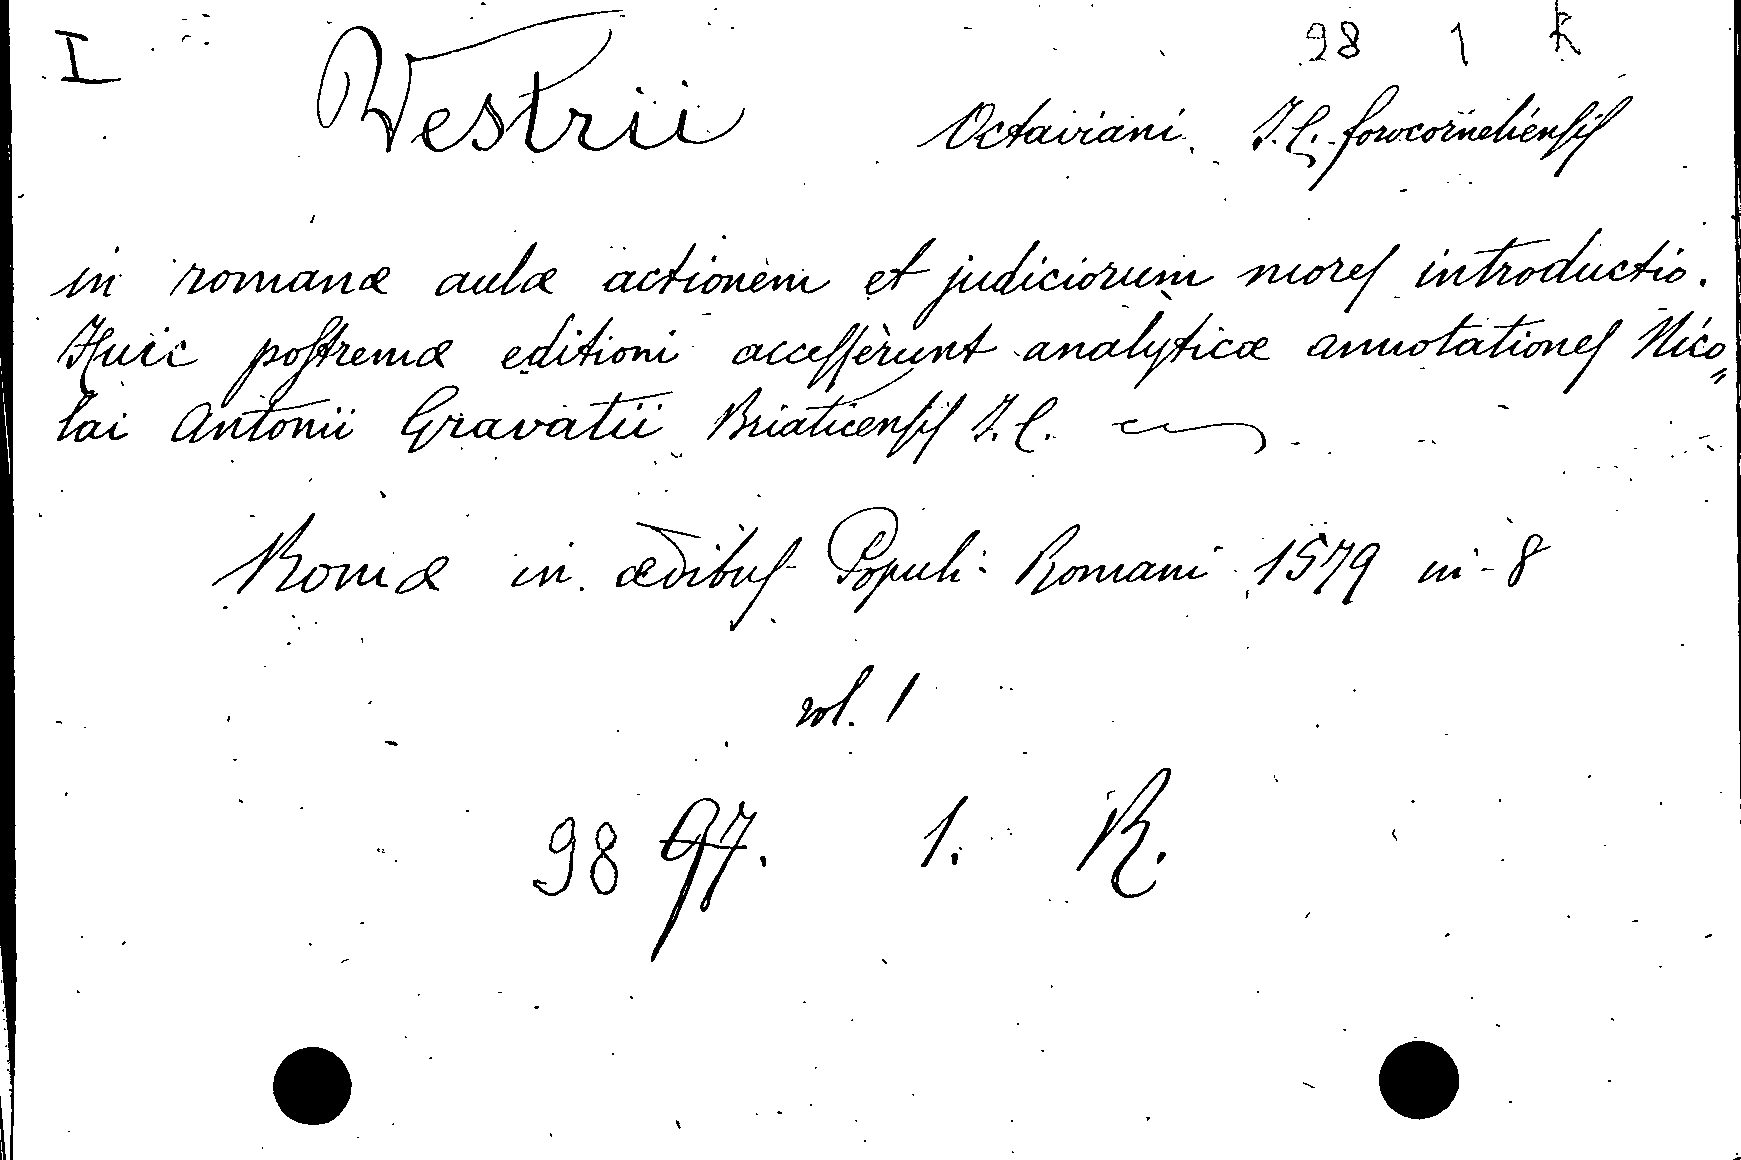 I 98 1 R
Vestrii Octaviani. J. C. forocorneliensis
in romanæ aulæ actionem et judiciorum mores introductio.
Huic postremæ editioni accesserunt analyticæ annotationes Nico„
lai Antonii Gravatii Briaticensis J. C.
Romæ in ædibus Populi Romani 1579 in-8
vol. 1
98 97. 1. R.